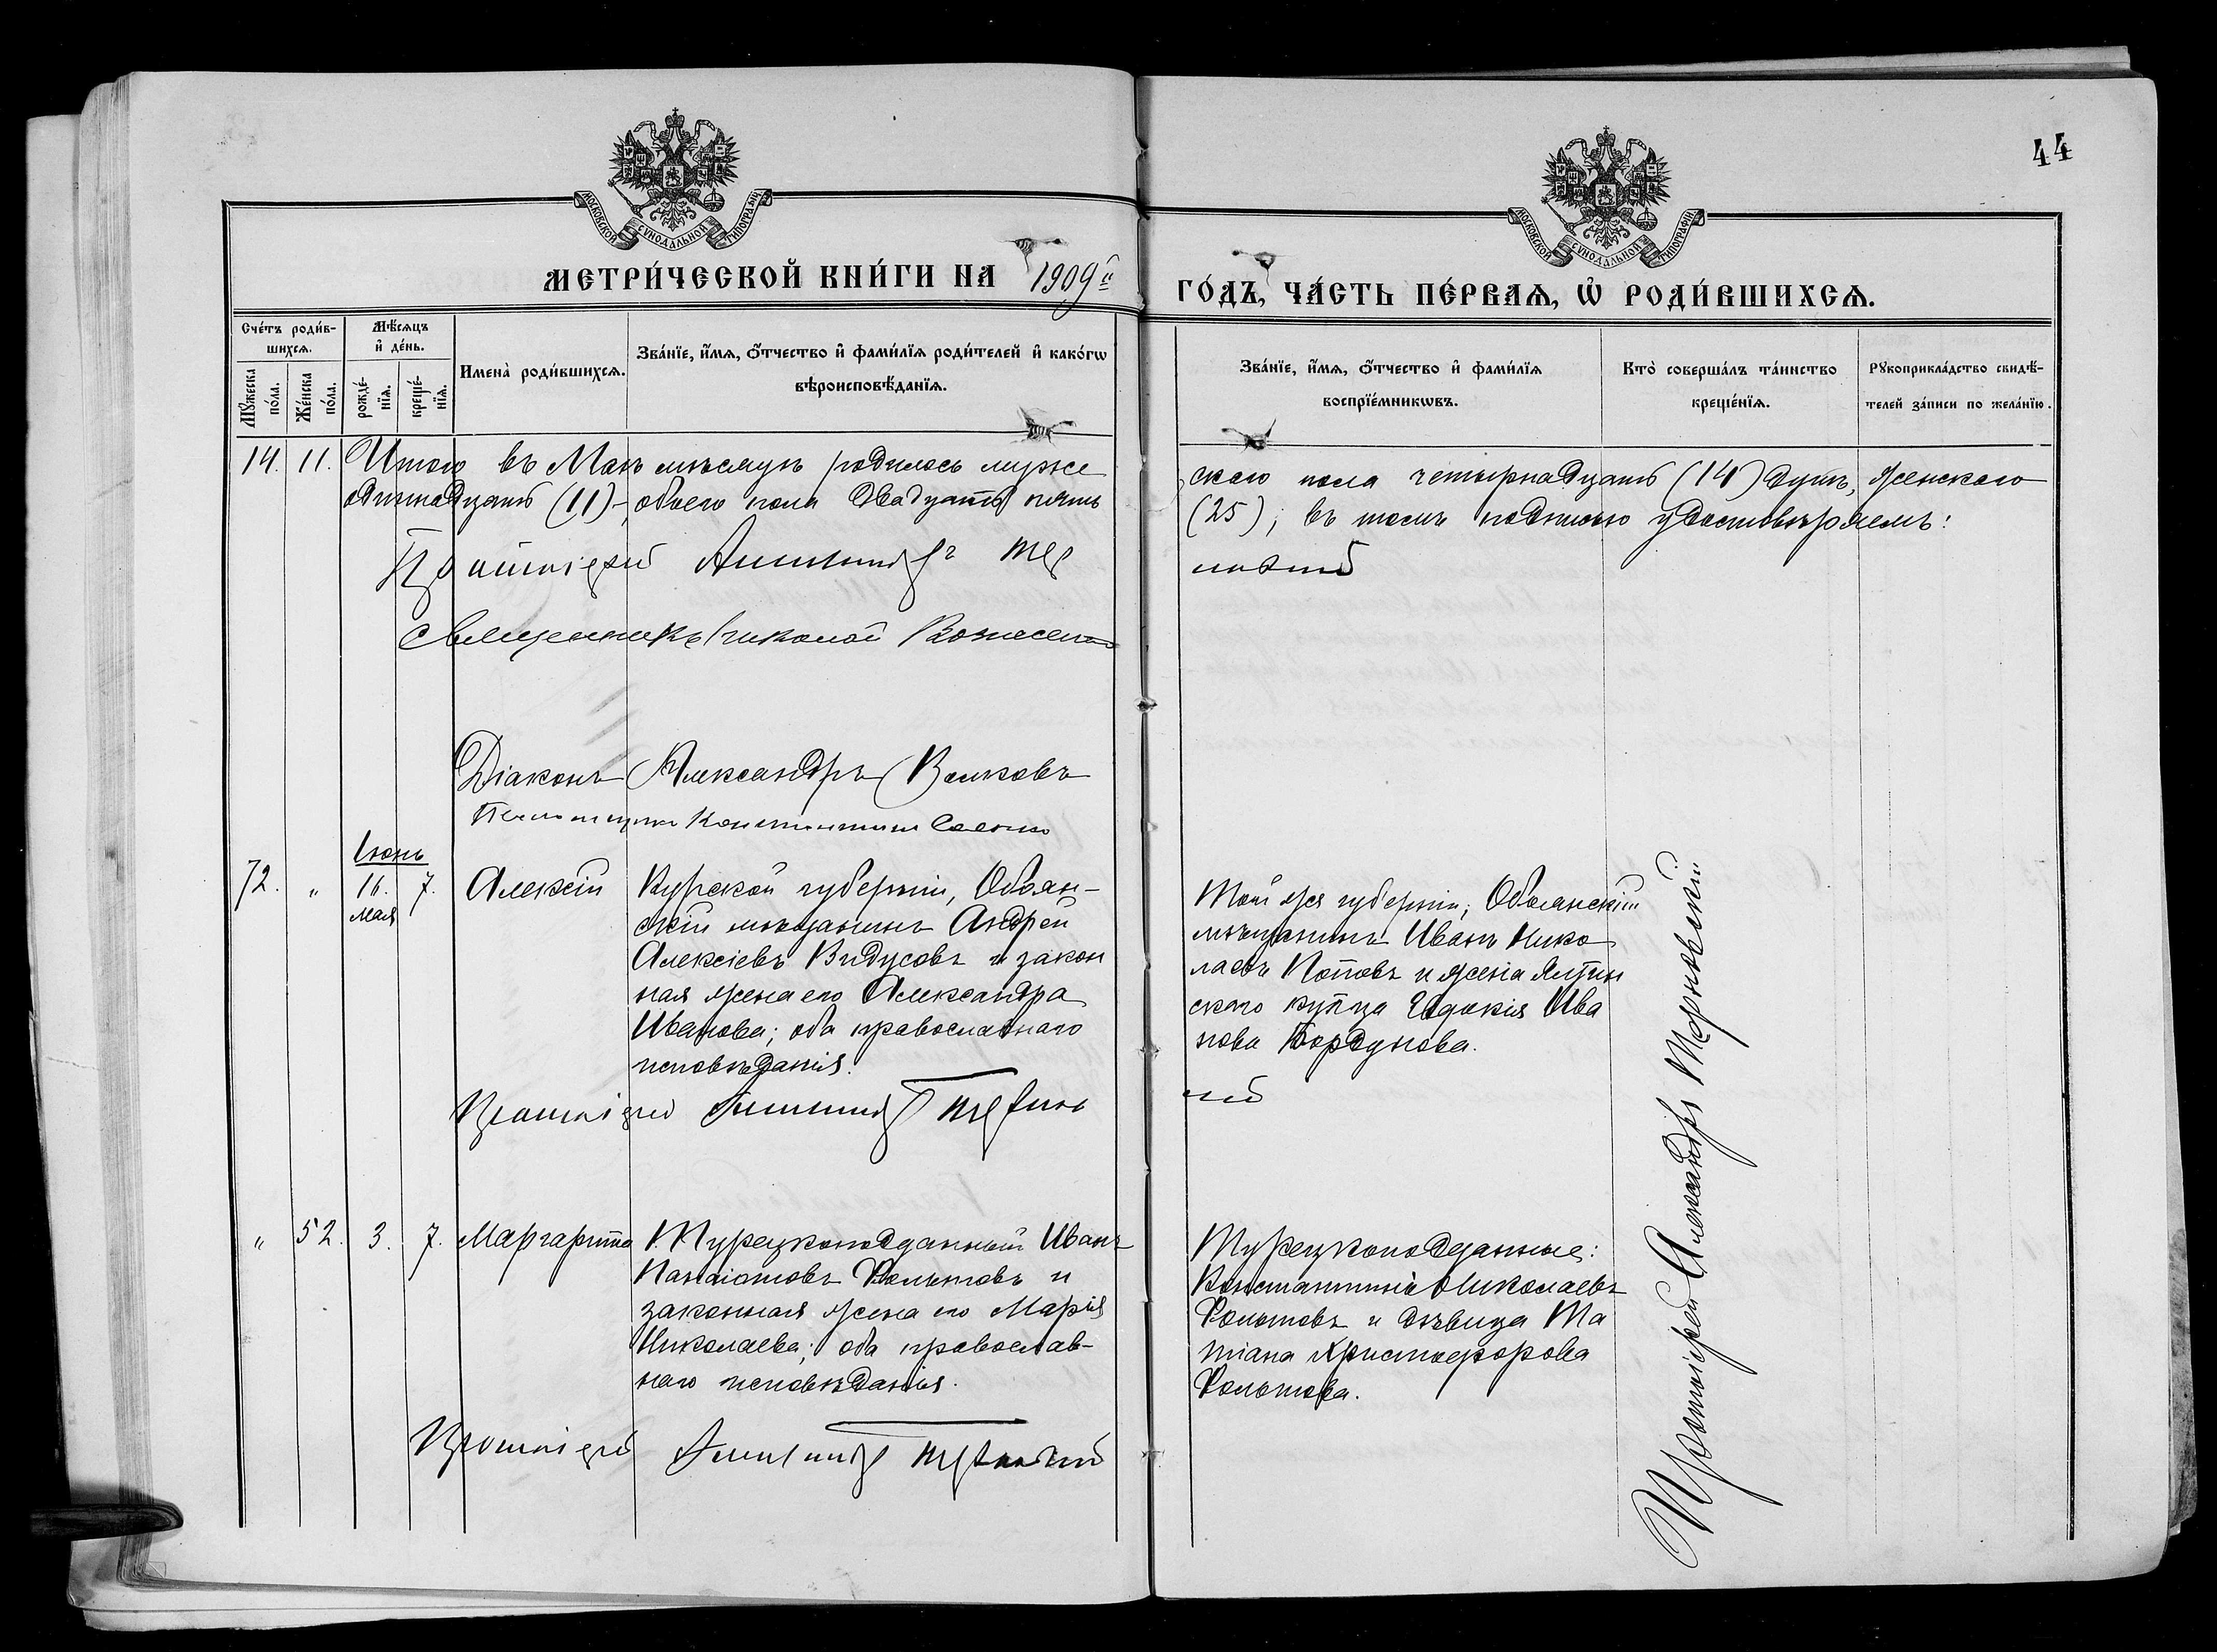 44
МОСКОВСКОЙ СѴНОДАЛЬНОЙ ТИПОГРАФІИ
МОСКОВСКОЙ СѴНОДАЛЬНОЙ ТИПОГРАФІИ
МЕТРИ́ЧЕСКОЙ КНИ́ГИ НА 1909й
ГО́ДЪ, ЧА́СТЬ ПЕ́РВАѦ, Ѡ҆ РОДИ́ВШИХСѦ.
Сче́тъ роди́в-
шихсѧ.
Мꙋ́жеска по́ла.
Же́нска по́ла.
Мѣ́сѧцъ
и҆ де́нь.
рожде́-
нїѧ.
креще́-
нїѧ.
Имена̀ роди́вшихсѧ.
Зва́нїе, и҆́мѧ, ѻ҆́тчество и҆ фами́лїѧ роди́телей и҆ како́гѡ
вѣроисповѣ́данїѧ.
Зва́нїе, и҆́мѧ, ѻ҆́тчество и҆ фами́лїѧ
воспрїе́мникѡвъ.
Кто̀ соверша́лъ та́инство
креще́нїѧ.
Рꙋкоприкла́дство свидѣ́-
телей за́писи по жела́нїю.
14. 11. Итого въ Маѣ мѣсяцѣ родилось муже
ского пола четырнадцать (14) душъ, женскаго
одиннадцать (11)-, обоего пола двадцать пять
(25); въ томъ подписью удостовѣряемъ:
Протоіерей Александръ Тер
новскій
Священникъ Николай Вознесенскій
Діаконъ Александръ Волковъ
Псаломщикъ Константинъ
Іюнь
72. " 16. 7. Алексѣй
мая
Курской губерніи, Обоян-
скій мѣщанинъ Андрей
Алексіевъ Видусовъ и закон
ная жена его Александра
Иванова; оба православнаго
исповѣданія.
Той же губерніи, Обоянскій
мѣщанинъ Иванъ Нико
лаевъ Поповъ и жена Ялтин
скаго купца Евдокія Ива
нова Бордунова.
Протоіерей Александръ Тернов
скій
" 52. 3. 7. Маргарита
Турецкоподданный Иванъ
Панаіотовъ Фольтовъ и
законная жена его Марія
Николаева; оба православ-
наго исповѣданія.
Турецкоподданные:
Константинъ Николаевъ
Фольтовъ и дѣвица Та
тіана Христофорова
Фольтова.
Протоіерей Александръ Терновскій
Протоіерей Александръ Терновскій